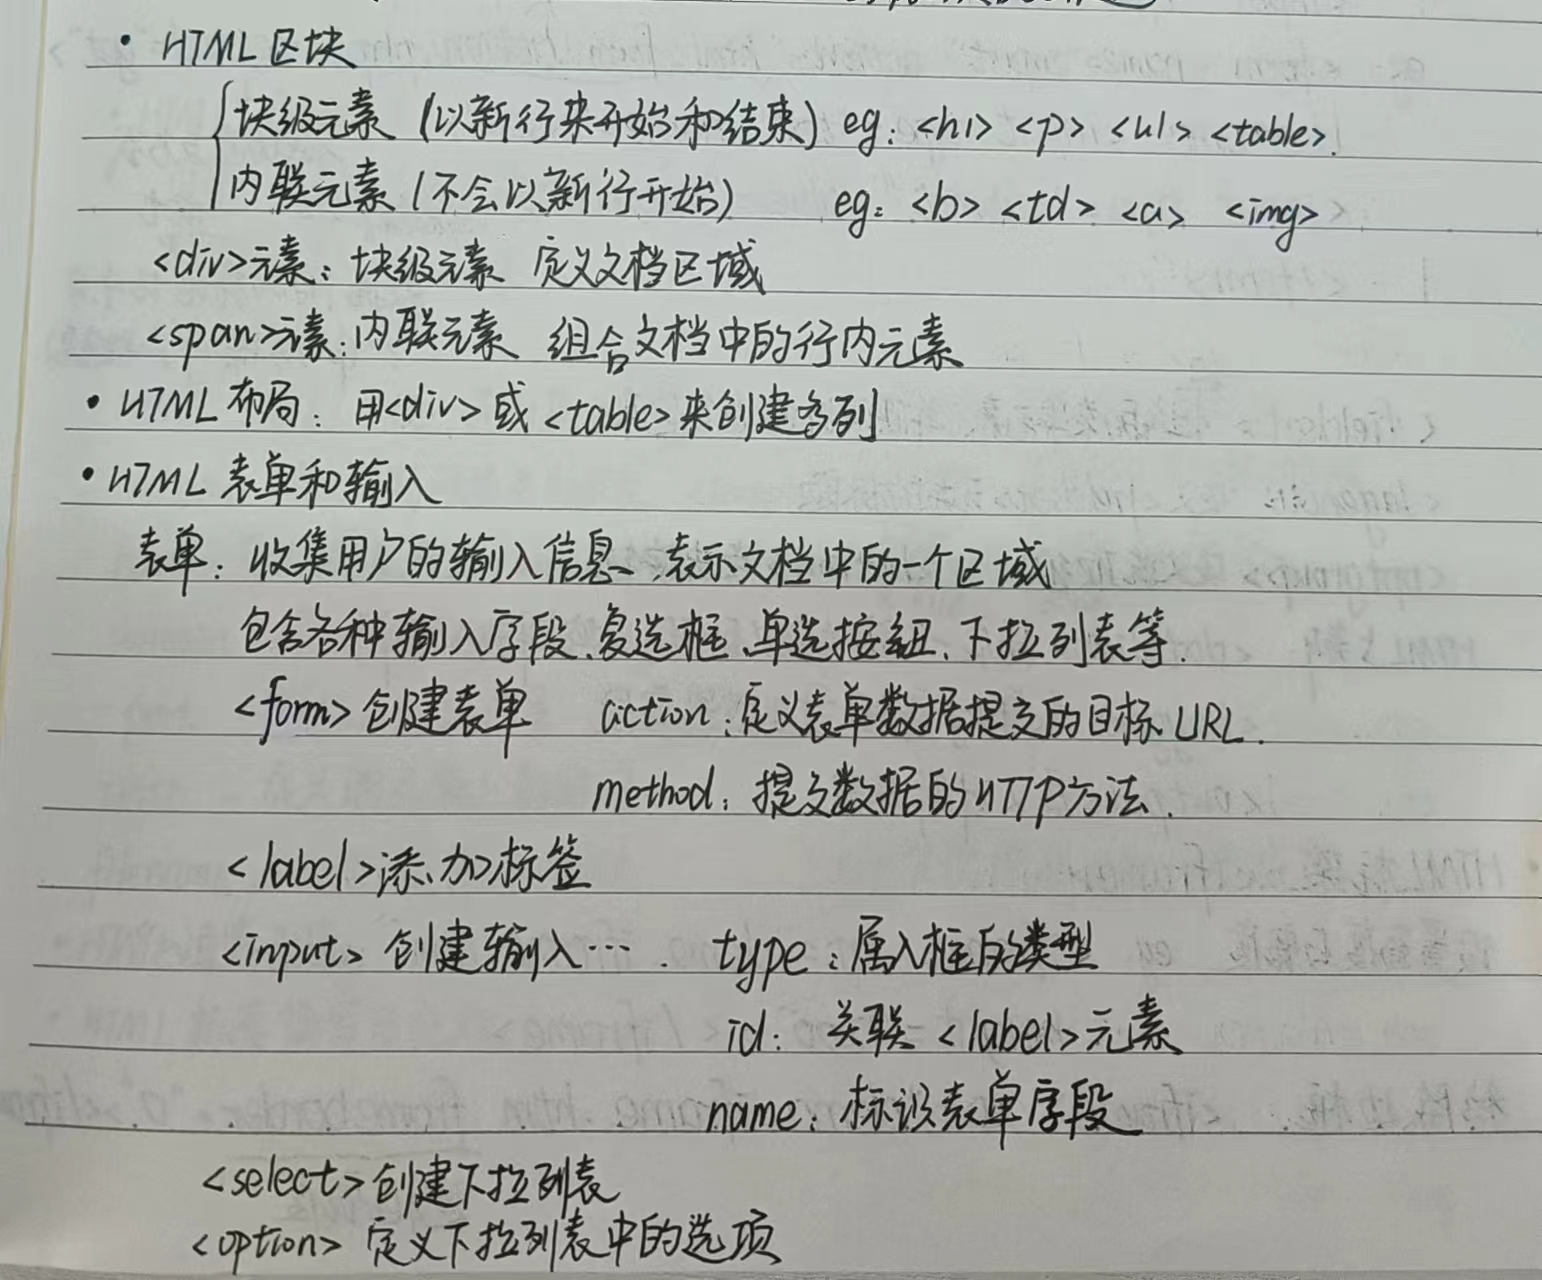 • HTML 区块
块级元素 (以新行来开始和结束) eg: <h1> <p> <ul> <table>.
内联元素 (不会以新行开始) eg: <b> <td> <a> <img>
<div>元素: 块级元素 定义文档区域
<span>元素: 内联元素 组合文档中的行内元素
• HTML 布局: 用<div> 或 <table> 来创建多列
• HTML 表单和输入
表单: 收集用户的输入信息、表示文档中的一个区域
包含各种输入字段、复选框、单选按钮、下拉列表等.
<form> 创建表单 action: 定义表单数据提交的目标 URL.
method: 提交数据的 HTTP 方法.
<label>添加标签
<input> 创建输入… . type: 属入框的类型
id: 关联 <label>元素
name: 标识表单字段
<select> 创建下拉列表
<option> 定义下拉列表中的选项